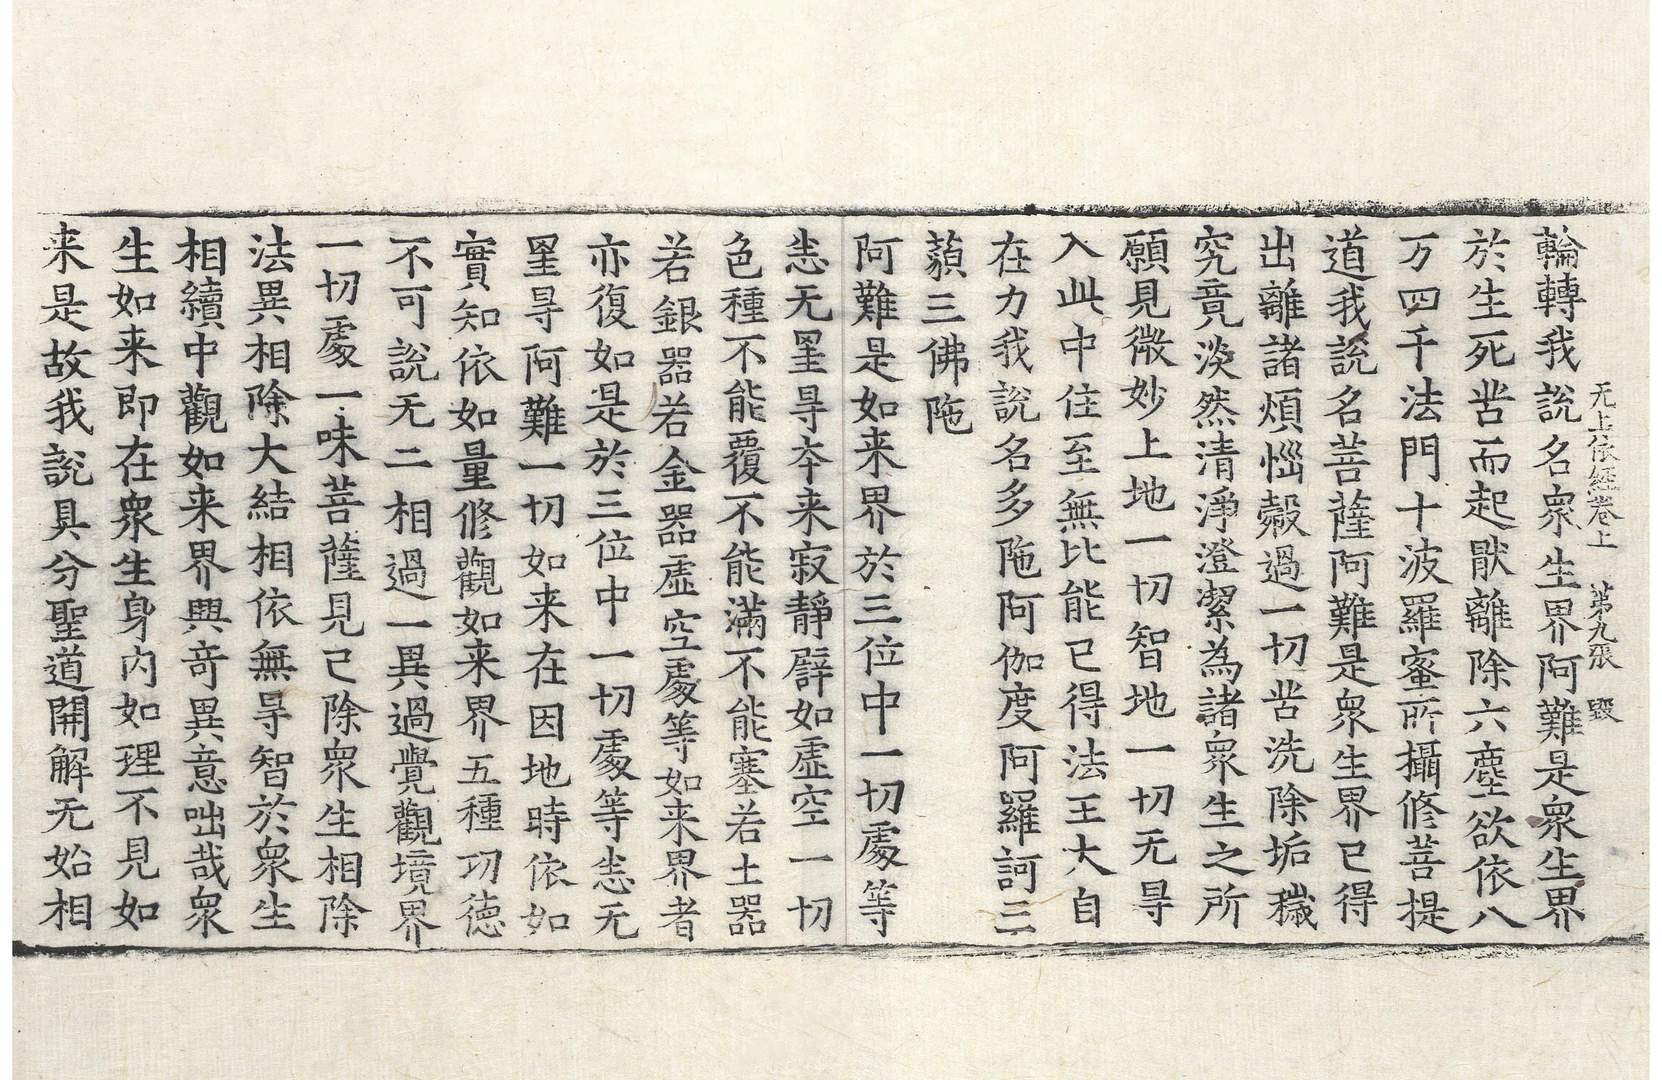 无上依經卷上 第九張 毀
輪轉我說名衆生界阿難是衆生界
於生死苦而起猒離除六塵欲依八
万四千法門十波羅蜜所攝修菩提
道我說名菩薩阿難是衆生界已得
出離諸煩惱㲉過一切苦洗除垢穢
究竟淡然清淨澄潔為諸衆生之所
願見微妙上地一切智地一切无㝵
入此中住至無比能已得法王大自
在力我說名多陁阿伽度阿羅訶三
藐三佛陁
阿難是如来界於三位中一切處等
悉无罣㝵夲来寂靜譬如虛空一切
色種不能覆不能滿不能塞若土器
若銀器若金器虛空處等如来界者
亦復如是於三位中一切處等悉无
罣㝵阿難一切如来在因地時依如
實知依如量修觀如来界五種功徳
不可說无二相過一異過覺觀境界
一切處一味菩薩見已除衆生相除
法異相除大結相依無㝵智於衆生
相續中觀如来界興竒異意咄哉衆
生如来即在衆生身內如理不見如
来是故我說具分聖道開解无始相